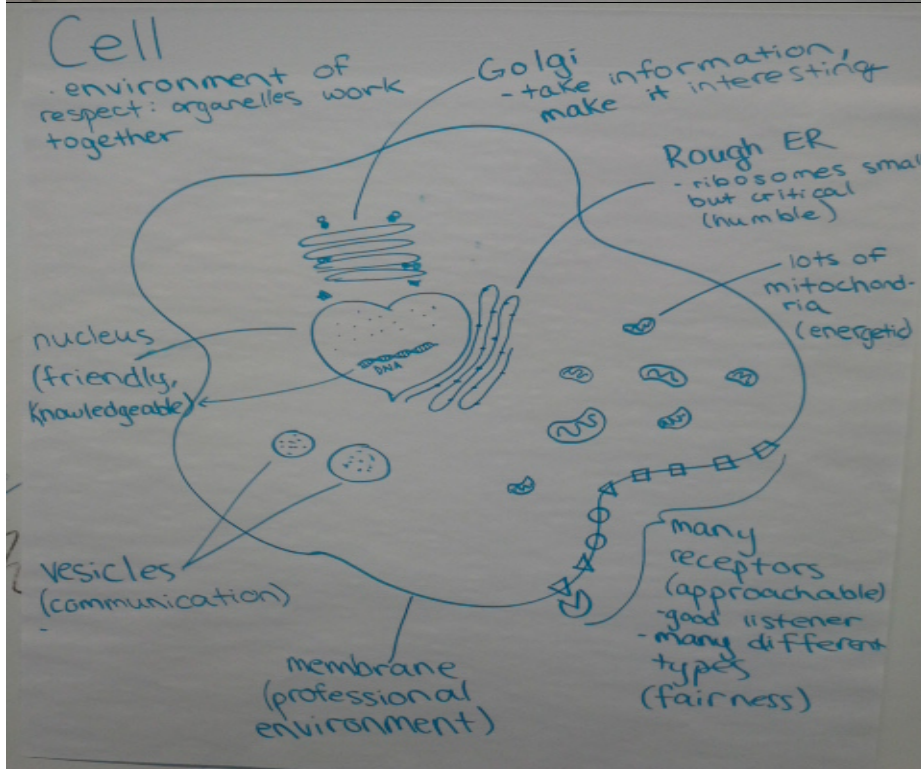 Cell
· environment of
respect: organelles work
together
Golgi
- take information,
make it interesting
Rough ER
- ribosomes small
but critical
(humble)
lots of
mitochond-
ria
(energetic)
nucleus
(friendly,
knowledgeable)
DNA
vesicles
(communication)
-
membrane
(professional
environment)
many
receptors
(approachable)
- good listener
- many different
types
(fairness)